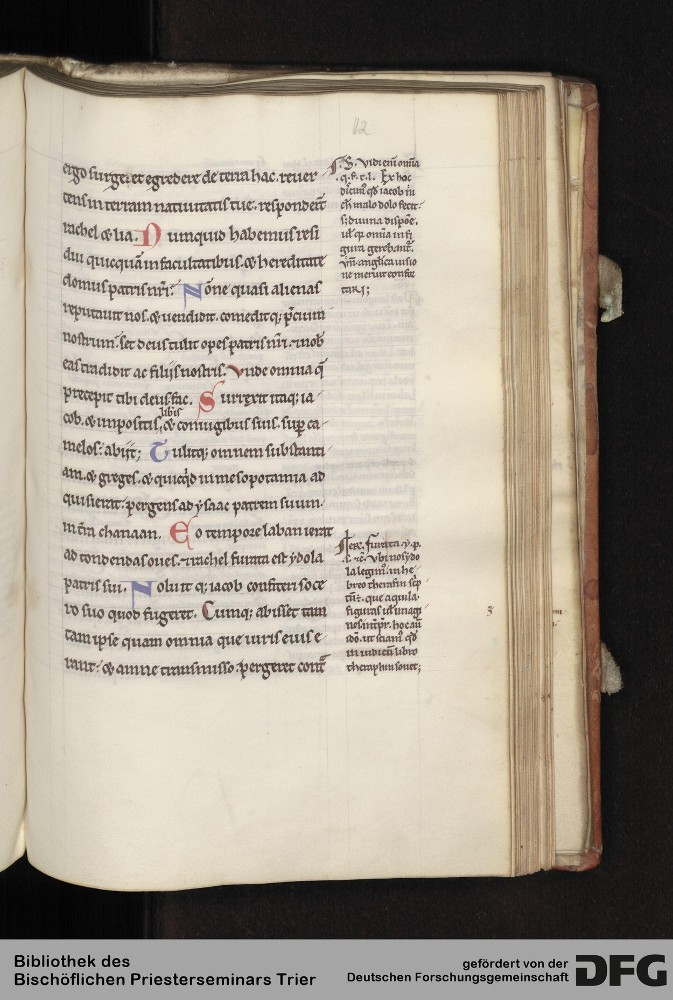 112
ergo surge. et egredere de terra hac. reuer
tens in terram natiuitatis tue. responderūt
rachel & lia. Nunquid habemus resi
dui quicquā in facultatibus. & hereditate
domus patris nr̄i? Nōne quasi alienas
reputauit nos. & uendidit. comeditq; p̄cium
nostrum? set deus tulit opes patris nr̄i. & nob̄
eas tradidit ac filijs nostris. Vnde omnia q̄
precepit tibi deus fac. Surrexit itaq; ia
cob. & impositis libis & coniugibus suis. sup ca
melos. abijt; Tulitq; omnem substanti
am. & greges. & quicq̄d in mesopotamia ad
quisierat. pergens ad ysaac patrem suum.
in tr̄m chanaan. Eo tempore laban ierat
ad tondendas oues. & rachel furata est ydola
patris sui. Noluitq; iacob confiteri soce
ro suo quod fugeret. Cumq; abisset tam
tam ipse quam omnia que iuris eius e
rant. & amne transmisso. pergeret cont̄
S. Vidi eni omīa
q. f. t. l. Ex hoc
dicim' qd iacob in
ch malo dolo fecit
s; diuina dispōe.
uł q omīa in fi
gura gerebant.
angelica uisio
ne meruit confor
tari;
furata. y. p.
Vbi nos ydo
la legim'. in he
breo theraphin sc̄p
tū. que aquila
figuras uł imagi
nes int̄pr. hoc aut
ido. ut sciam' qd
in iudicū libro
theraphim sonet;
3
Bibliothek des
Bischöflichen Priesterseminars Trier
gefördert von der
Deutschen Forschungsgemeinschaft
DFG